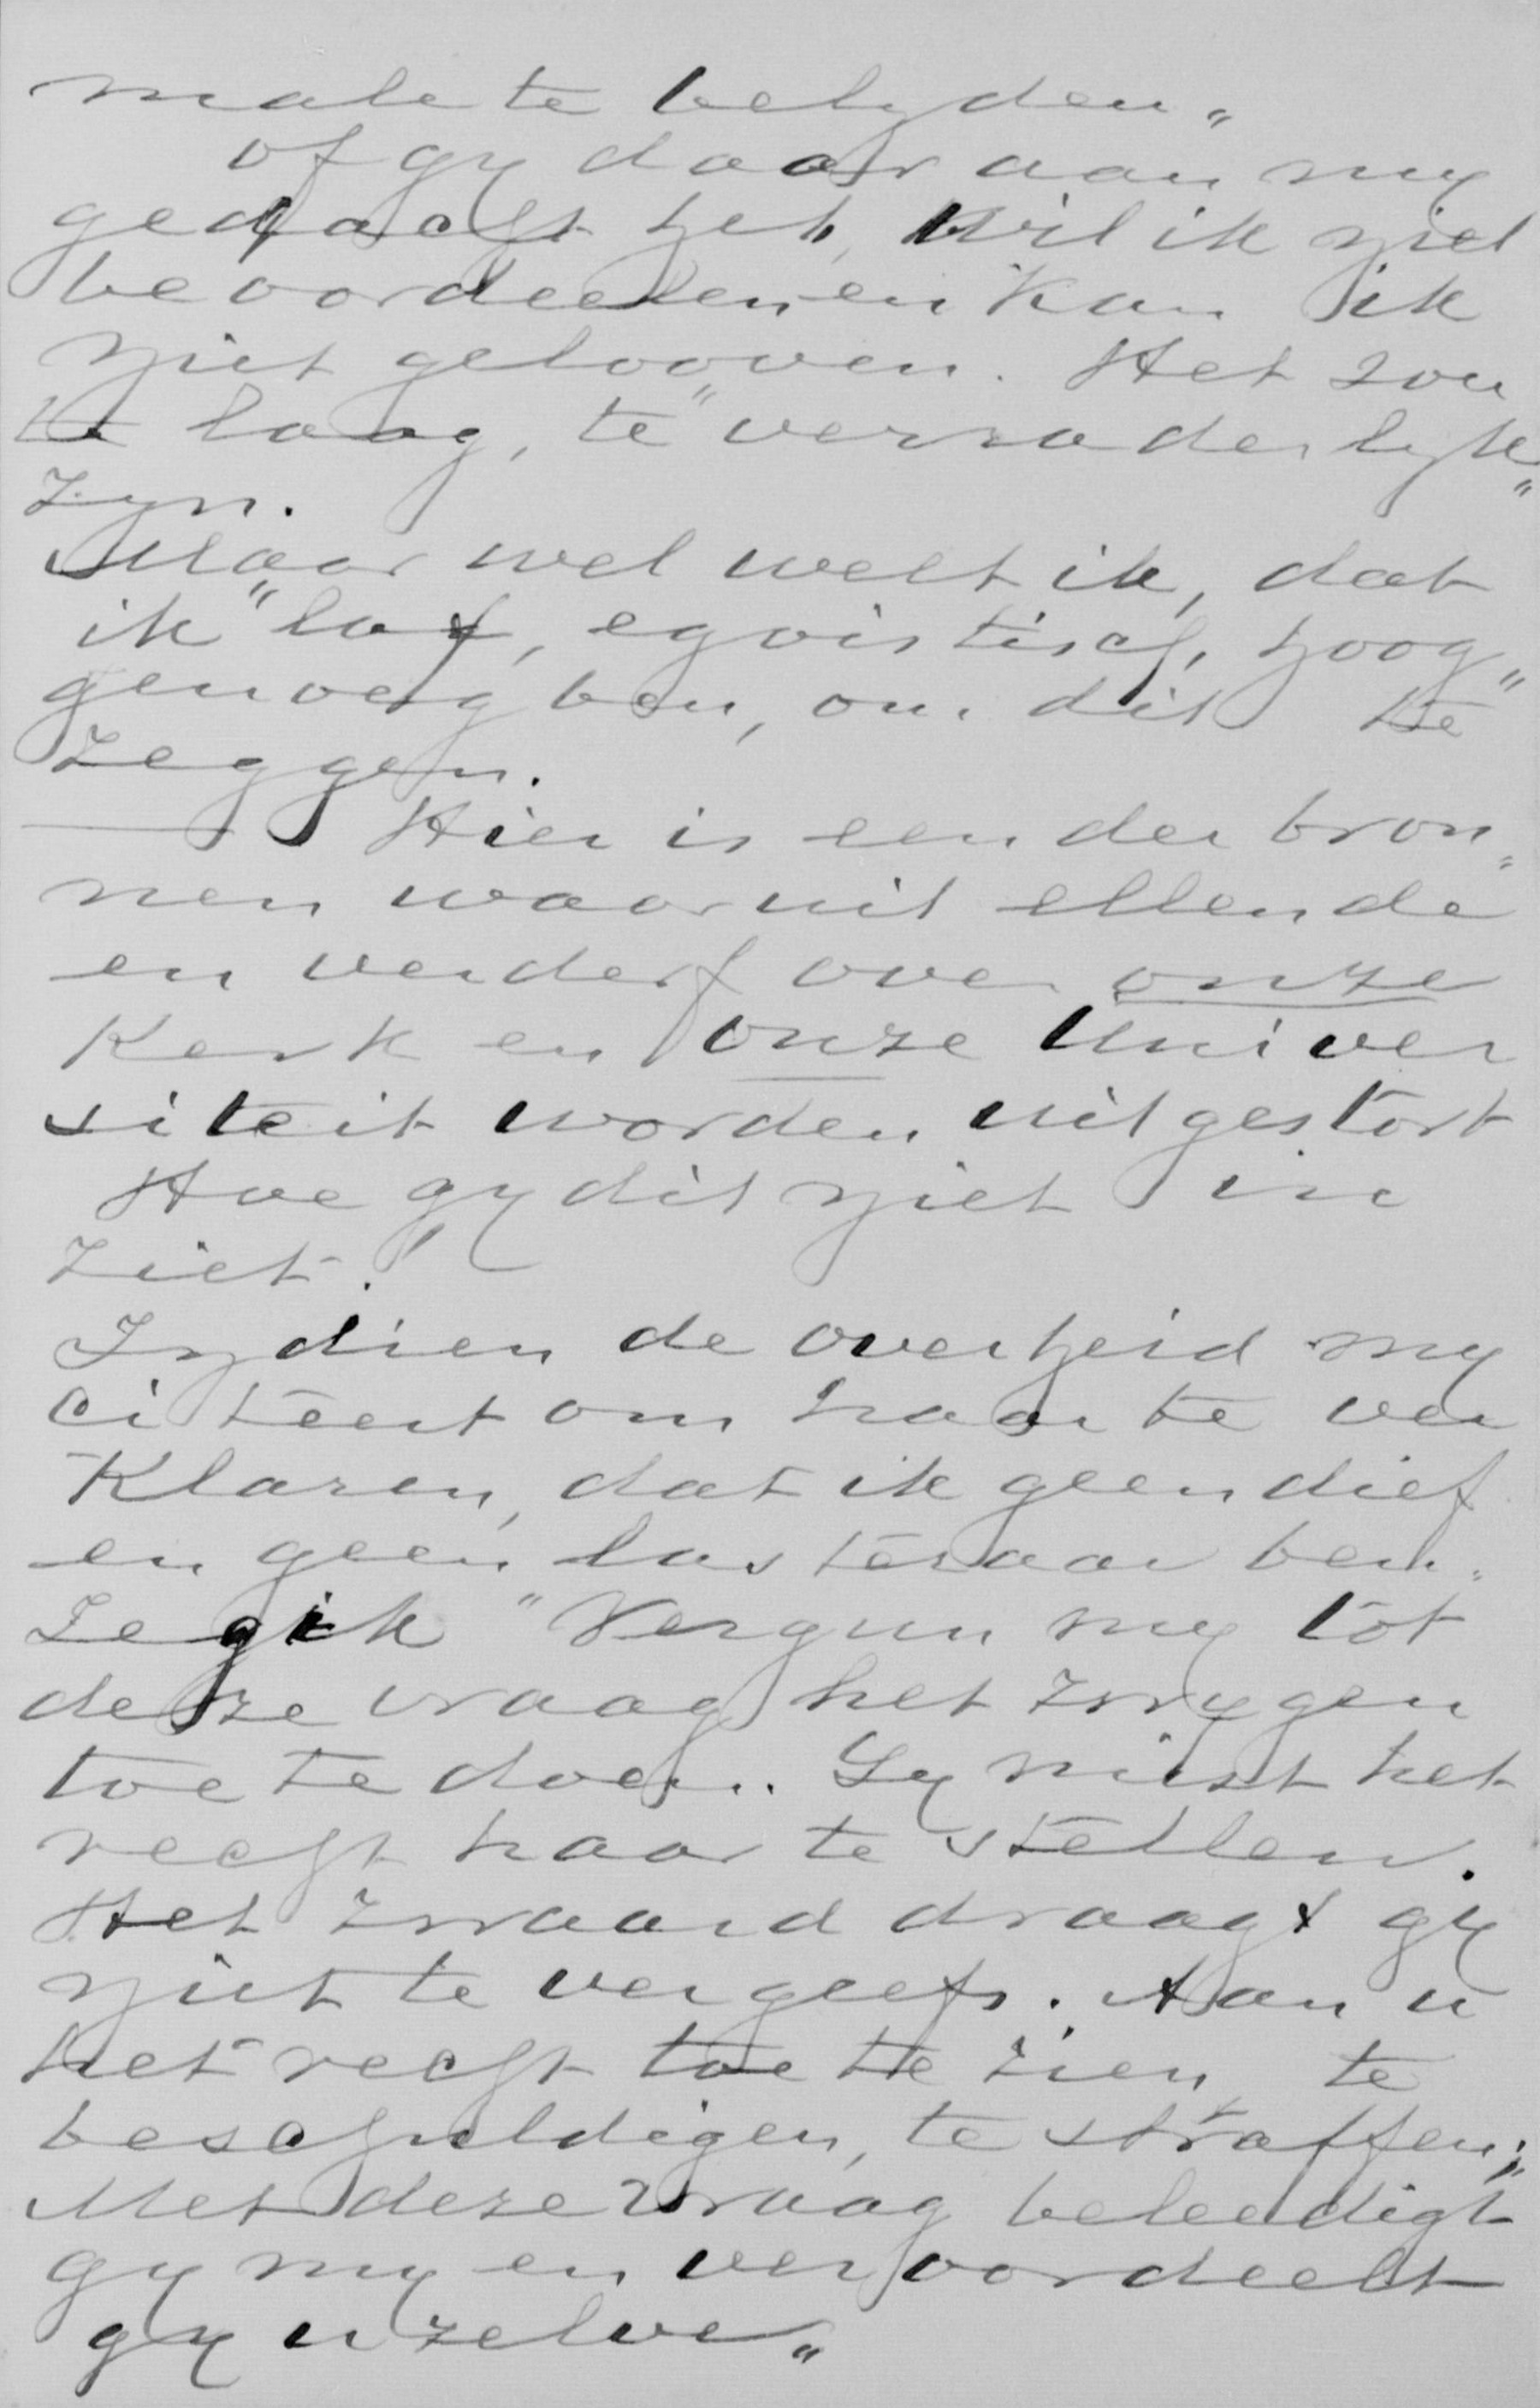 male te belyden„
of gy daar aan my
gedacht hebt, wil ik niet
beoordeelen en kan ik
niet gelooven. Het zou
te laag, te "verraderlyk„
zyn.
Maar wel weet ik, dat
ik "laf, egoistisch, hoog„
genoeg ben, om dit te
zeggen.
— Hier is een der bron„
nen waaruit ellende
en verderf over onze
Kerk en onze Univer
siteit worden uitgestort
Hoe gy dit niet in
ziet!
Indien de overheid my
citeert om haar te ver
klaren, dat ik geen dief
en geen lasteraar ben„
Zeg ik "Vergun my tot
deze vraag het zwygen
toe te doen. Gy mist het
recht haar te stellen.
Het zwaard draagt gy
niet te vergeefs. Aan u
het recht toe te zien, te
beschuldigen, te straffen;„
Met deze vraag beleedigt
gy my en veroordeelt
gy uzelve„